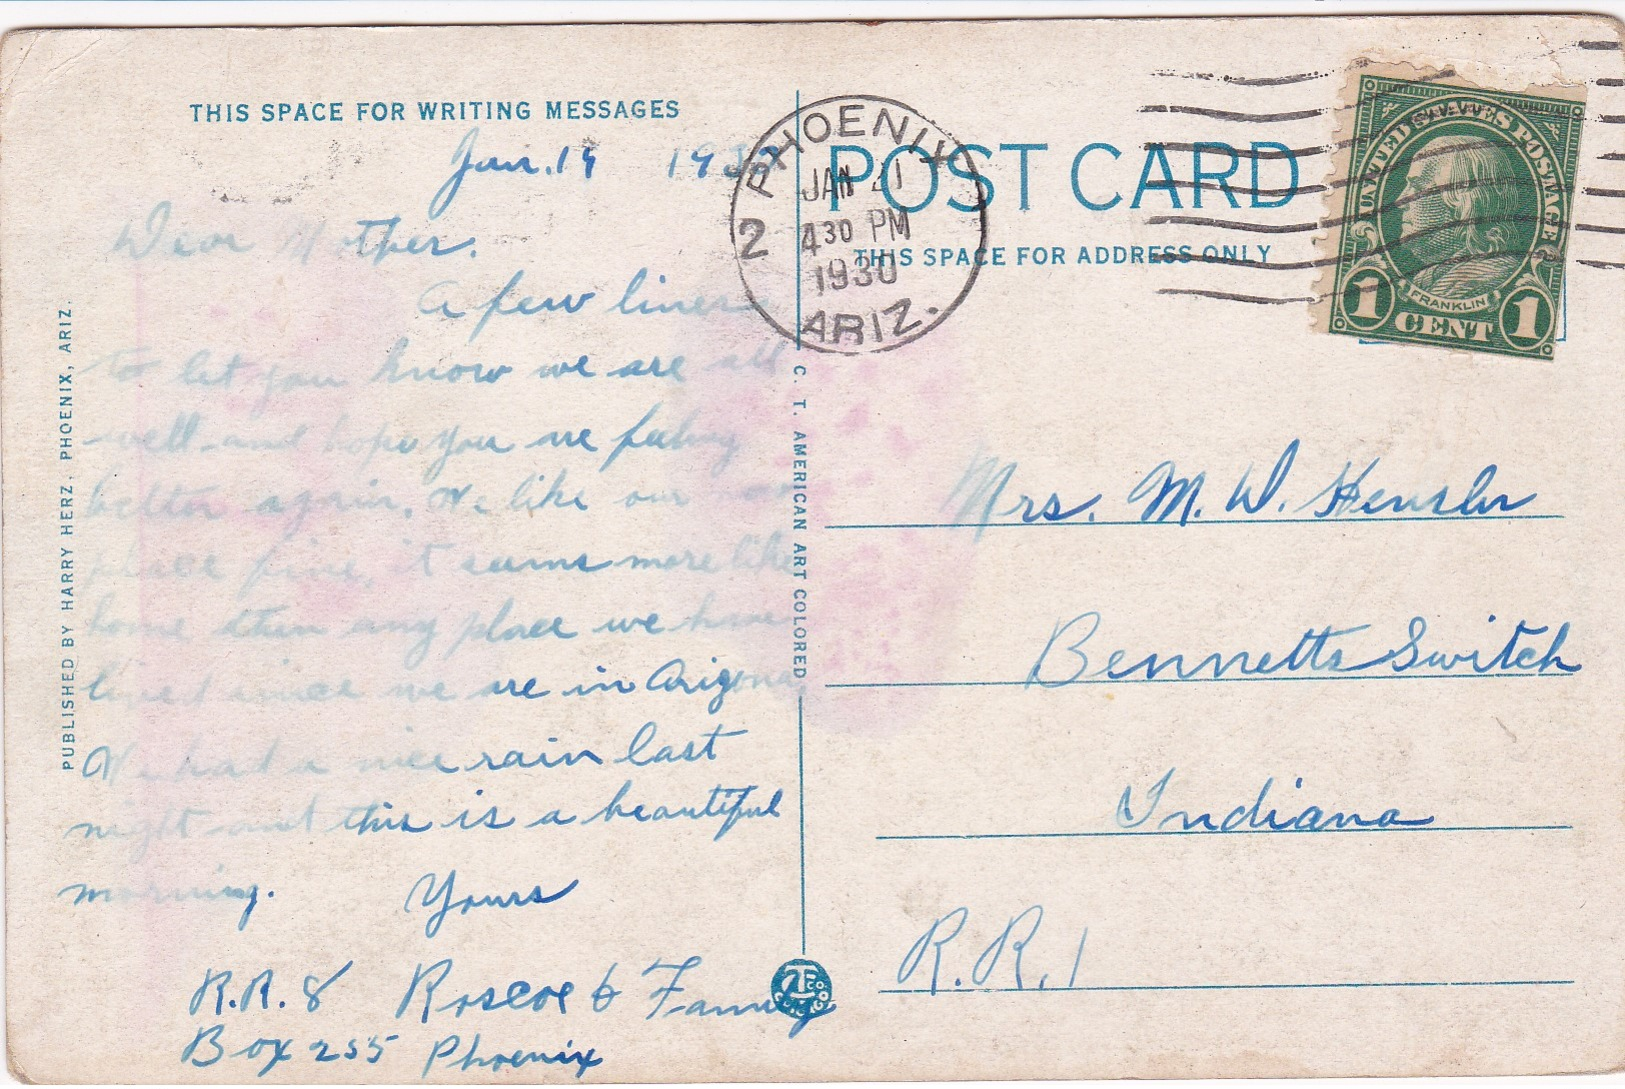 THIS SPACE FOR WRITING MESSAGES
Jan. 19 1930
Dear Mother.
A few lines
to let you know we are all
well and hope you are feeling
better again. We like our new
place fine, it seems more like
home than any place we have
lived since we are in Arizona.
We had a nice rain last
night and this is a beautiful
morning. Yours
R.R. 8 Roscoe & Family
Box 255 Phoenix
PUBLISHED BY HARRY HERZ, PHOENIX, ARIZ.
C. T. AMERICAN ART COLORED
PHOENIX
2
JAN 21
4 30 PM
1930
ARIZ.
POST CARD
THIS SPACE FOR ADDRESS ONLY
UNITED STATES POSTAGE
FRANKLIN
1 CENT 1
Mrs. M. W. Hensler
Bennetts Switch
Indiana
R.R. 1